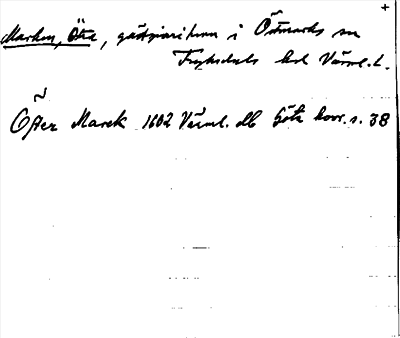 +
Marken, Östra, gästgivarihem i Östmarks sn
Fryksdals hd Värml. L.
Öfter Marck 1602 Värml. db Götz korr. s. 38